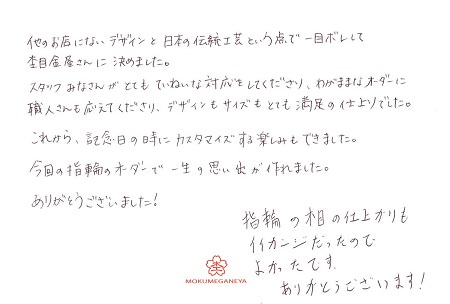 他のお店にないデザインと日本の伝統工芸という点で一目ボレして
杢目金屋さんに決めました。
スタッフみなさんがとてもていねいな対応をしてくださり、わがままなオーダーに
職人さんも応えてくださり、デザインもサイズもとても満足の仕上りでした。
これから、記念日の時にカスタマイズする楽しみもできました。
今回の指輪のオーダーで一生の思い出が作れました。
ありがとうございました!
指輪の相の仕上がりも
イイカンジだったので
よかったです。
ありがとうございます!
MOKUMEGANEYA